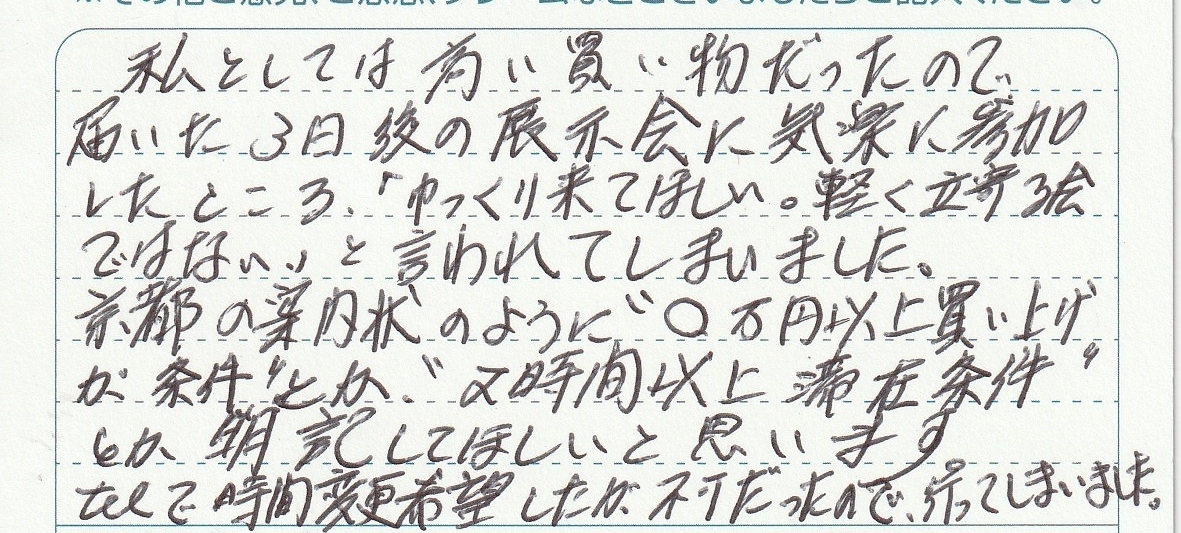 ※その他ご意見、ご感想、クレームなどございましたらご記入ください。
私としては高い買い物だったので
届いた3日後の展示会に気楽に参加
したところ、「ゆっくり来てほしい。軽く立寄る会
ではない」と言われてしまいました。
京都の案内状のように“〇万円以上買い上げ
が条件”とか、“2時間以上滞在条件”
とか明記してほしいと思います
telで時間変更希望したが不可だったので、行ってしまいました。